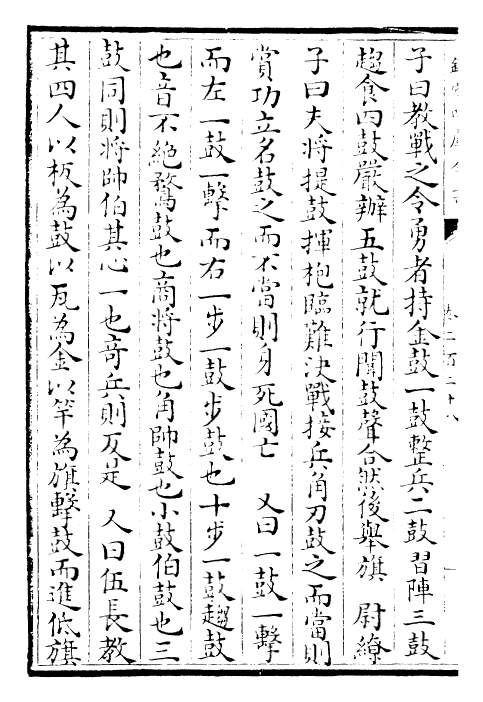 子曰教戰之令勇者持金鼓一鼓整兵二鼓習陣三鼓
趨食四鼓嚴辦五鼓就行聞鼓聲合然後舉旗　尉繚
子曰夫將提鼓揮枹臨難決戰接兵角刃鼓之而當則
賞功立名鼓之而不當則身死國亡　又曰一鼓一擊
而左一鼓一擊而右一步一鼓步鼓也十步一鼓趨鼓
也音不絕鶩鼓也商將鼓也角帥鼓也小鼓伯鼓也三
鼓同則將帥伯其心一也竒兵則反是　又曰伍長教
其四人以板為鼓以瓦為金以竿為旗擊鼓而進低旗